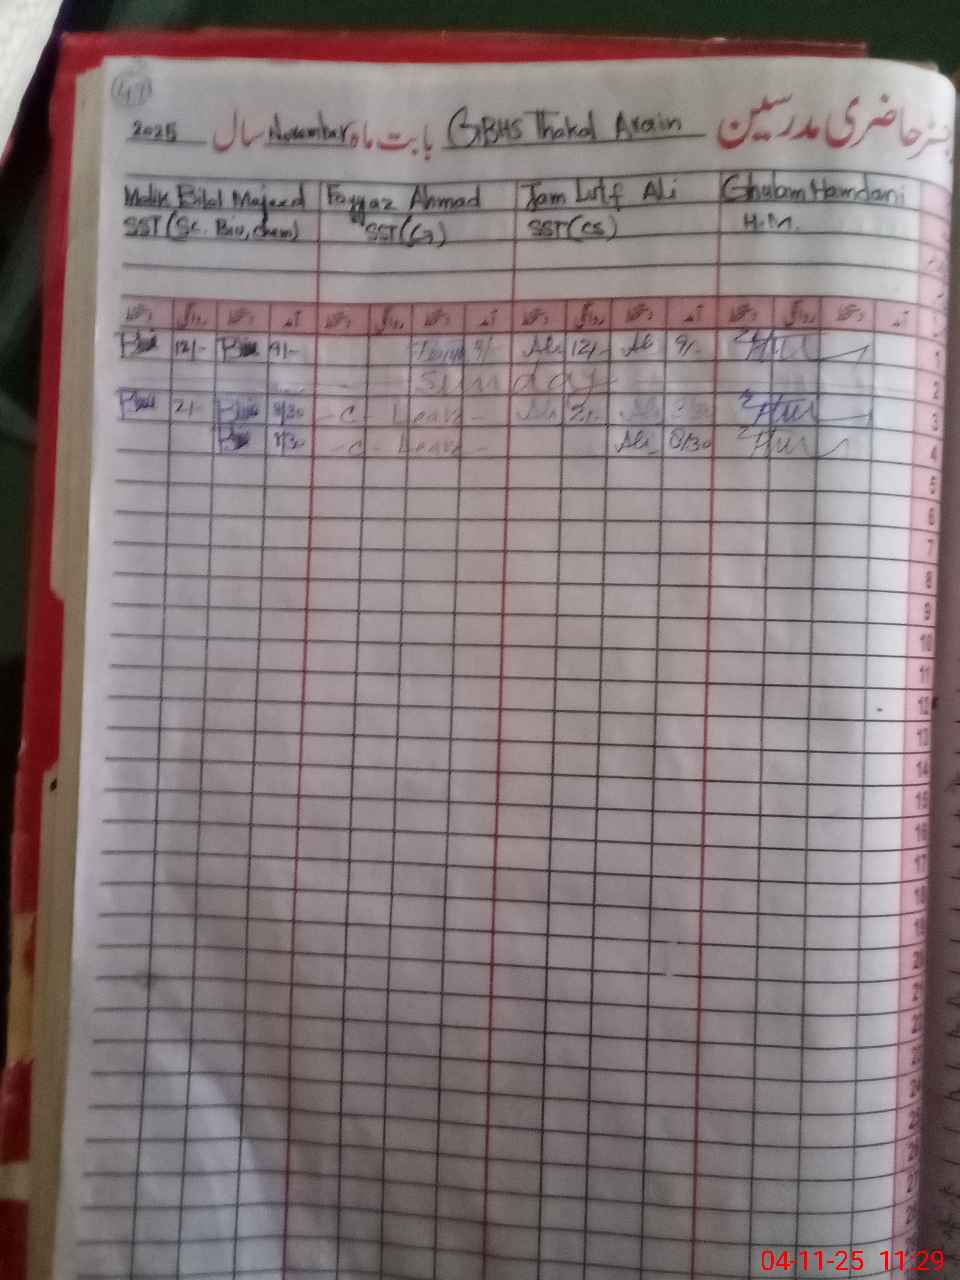 49
رجسٹر حاضری مدرسین GBHS Thakal Arain بابت ماہ November سال 2025
Malik Bilal Majeed Fayyaz Ahmad Jam Lutf Ali Ghulam Hamdani
SST (Sc. Bio, Chem) SST (G) SST (CS) H.M.
دستخط روانگی دستخط آمد دستخط روانگی دستخط آمد دستخط روانگی دستخط آمد دستخط روانگی دستخط آمد
12/- 9/- 9/- Ali 12/- Ali 9/- 1
Sunday 2
2/- 8/30 - C - Leave - Ali 2/- Ali 8/30 3
8/30 - C - Leave - Ali 8/30 4
5
6
7
8
9
10
11
12
13
14
15
16
17
18
04-11-25 11:29